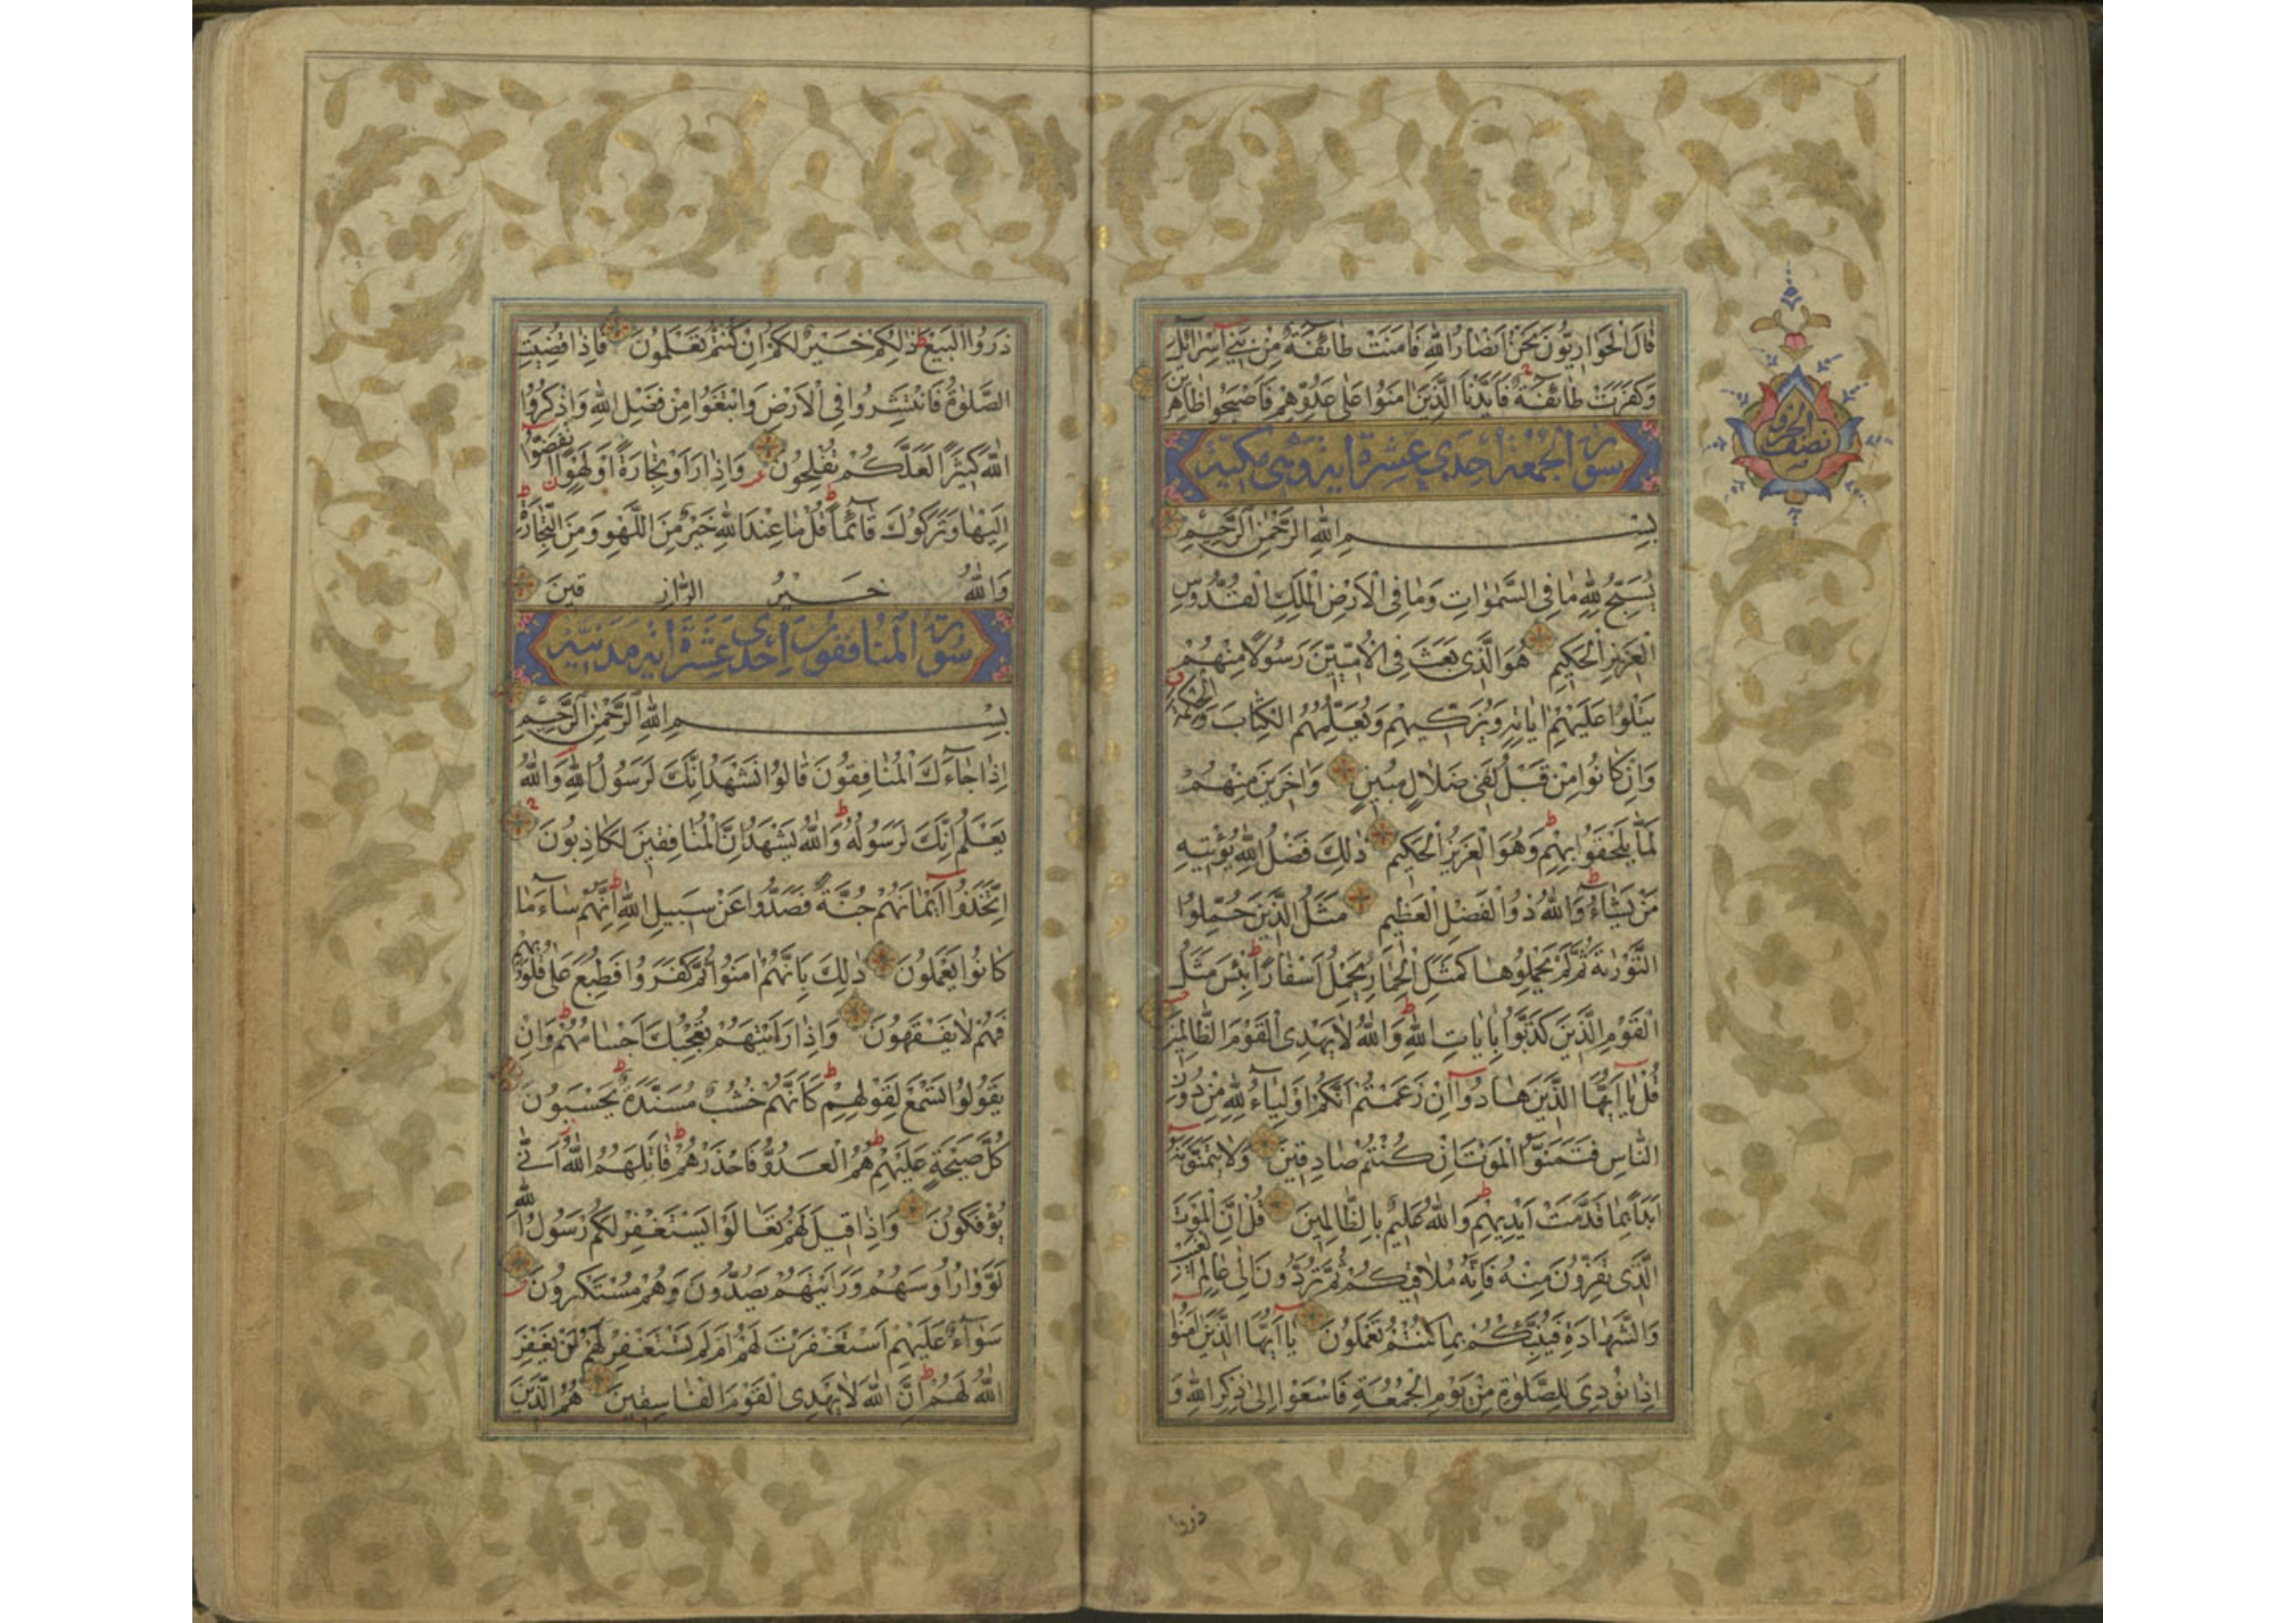 قَالَ الْحَوَارِيُّونَ نَحْنُ اَنْصَارُ اللهِ فَاٰمَنَتْ طَائِفَةٌ مِنْ بَنِي اِسْرَائِلَ
وَكَفَرَتْ طَائِفَةٌ فَاَيَّدْنَا الَّذِينَ اٰمَنُوا عَلٰى عَدُوِّهِمْ فَاَصْبَحُوا ظَاهِرِينَ
سورة الجمعة احدي عشرة اية وهي مكية
نصف الحزب
بِسْمِ اللهِ الرَّحْمٰنِ الرَّحِيْمِ
يُسَبِّحُ لِلّٰهِ مَا فِي السَّمٰوَاتِ وَمَا فِي الْاَرْضِ الْمَلِكِ الْقُدُّوسِ
الْعَزِيزِ الْحَكِيمِ هُوَ الَّذِى بَعَثَ فِى الْاُمِّيِّنَ رَسُولًا مِنْهُمْ
يَتْلُوا عَلَيْهِمْ اٰيَاتِهِ وَيُزَكِّيهِمْ وَيُعَلِّمُهُمُ الْكِتَابَ وَالْحِكْمَةَ
وَاِنْ كَانُوا مِنْ قَبْلُ لَفِى ضَلَالٍ مُبِينٍ وَاٰخَرِينَ مِنْهُمْ
لَمَّا يَلْحَقُوا بِهِمْ وَهُوَ الْعَزِيزُ الْحَكِيمُ ذٰلِكَ فَضْلُ اللهِ يُؤْتِيهِ
مَنْ يَشَاءُ وَاللهُ ذُو الْفَضْلِ الْعَظِيمِ مَثَلُ الَّذِينَ حُمِّلُوا
التَّوْرٰيةَ ثُمَّ لَمْ يَحْمِلُوهَا كَمَثَلِ الْحِمَارِ يَحْمِلُ اَسْفَارًا بِئْسَ مَثَلُ
الْقَوْمِ الَّذِينَ كَذَّبُوا بِاٰيَاتِ اللهِ وَاللهُ لَا يَهْدِى الْقَوْمَ الظَّالِمِينَ
قُلْ يَا اَيُّهَا الَّذِينَ هَادُوا اِنْ زَعَمْتُمْ اَنَّكُمْ اَوْلِيَاءُ لِلّٰهِ مِنْ دُونِ
النَّاسِ فَتَمَنَّوُا الْمَوْتَ اِنْ كُنْتُمْ صَادِقِينَ وَلَا يَتَمَنَّوْنَهُ
اَبَدًا بِمَا قَدَّمَتْ اَيْدِيهِمْ وَاللهُ عَلِيمٌ بِالظَّالِمِينَ قُلْ اِنَّ الْمَوْتَ
الَّذِى تَفِرُّونَ مِنْهُ فَاِنَّهُ مُلَاقِيكُمْ ثُمَّ تُرَدُّونَ اِلٰى عَالِمِ الْغَيْبِ
وَالشَّهَادَةِ فَيُنَبِّئُكُمْ بِمَا كُنْتُمْ تَعْمَلُونَ يَا اَيُّهَا الَّذِينَ اٰمَنُوا
اِذَا نُودِىَ لِلصَّلٰوةِ مِنْ يَوْمِ الْجُمُعَةِ فَاسْعَوْا اِلٰى ذِكْرِ اللهِ وَ
ذروا
ذَرُوا الْبَيْعَ ذٰلِكُمْ خَيْرٌ لَكُمْ اِنْ كُنْتُمْ تَعْلَمُونَ فَاِذَا قُضِيَتِ
الصَّلٰوةُ فَانْتَشِرُوا فِي الْاَرْضِ وَابْتَغُوا مِنْ فَضْلِ اللهِ وَاذْكُرُوا
اللهَ كَثِيرًا لَعَلَّكُمْ تُفْلِحُونَ وَاِذَا رَاَوْ تِجَارَةً اَوْ لَهْوًا انْفَضُّوا
اِلَيْهَا وَتَرَكُوكَ قَائِمًا قُلْ مَا عِنْدَ اللهِ خَيْرٌ مِنَ اللَّهْوِ وَمِنَ التِّجَارَةِ
وَاللهُ خَيْرُ الرَّازِقِينَ
سورة المنافقون احدي عشرة اية مدنية
بِسْمِ اللهِ الرَّحْمٰنِ الرَّحِيْمِ
اِذَا جَاءَكَ الْمُنَافِقُونَ قَالُوا نَشْهَدُ اِنَّكَ لَرَسُولُ اللهِ وَاللهُ
يَعْلَمُ اِنَّكَ لَرَسُولُهُ وَاللهُ يَشْهَدُ اِنَّ الْمُنَافِقِينَ لَكَاذِبُونَ
اِتَّخَذُوا اَيْمَانَهُمْ جُنَّةً فَصَدُّوا عَنْ سَبِيلِ اللهِ اِنَّهُمْ سَاءَ مَا
كَانُوا يَعْمَلُونَ ذٰلِكَ بِاَنَّهُمْ اٰمَنُوا ثُمَّ كَفَرُوا فَطُبِعَ عَلٰى قُلُوبِهِمْ
فَهُمْ لَا يَفْقَهُونَ وَاِذَا رَاَيْتَهُمْ تُعْجِبُكَ اَجْسَامُهُمْ وَاِنْ
يَقُولُوا تَسْمَعْ لِقَوْلِهِمْ كَاَنَّهُمْ خُشُبٌ مُسَنَّدَةٌ يَحْسَبُونَ
كُلَّ صَيْحَةٍ عَلَيْهِمْ هُمُ الْعَدُوُّ فَاحْذَرْهُمْ قَاتَلَهُمُ اللهُ اَنّٰى
يُؤْفَكُونَ وَاِذَا قِيلَ لَهُمْ تَعَالَوْا يَسْتَغْفِرْ لَكُمْ رَسُولُ اللهِ
لَوَّوْا رُاُوسَهُمْ وَرَاَيْتَهُمْ يَصُدُّونَ وَهُمْ مُسْتَكْبِرُونَ
سَوَاءٌ عَلَيْهِمْ اَسْتَغْفَرْتَ لَهُمْ اَمْ لَمْ تَسْتَغْفِرْ لَهُمْ لَنْ يَغْفِرَ
اللهُ لَهُمْ اِنَّ اللهَ لَا يَهْدِى الْقَوْمَ الْفَاسِقِينَ هُمُ الَّذِينَ